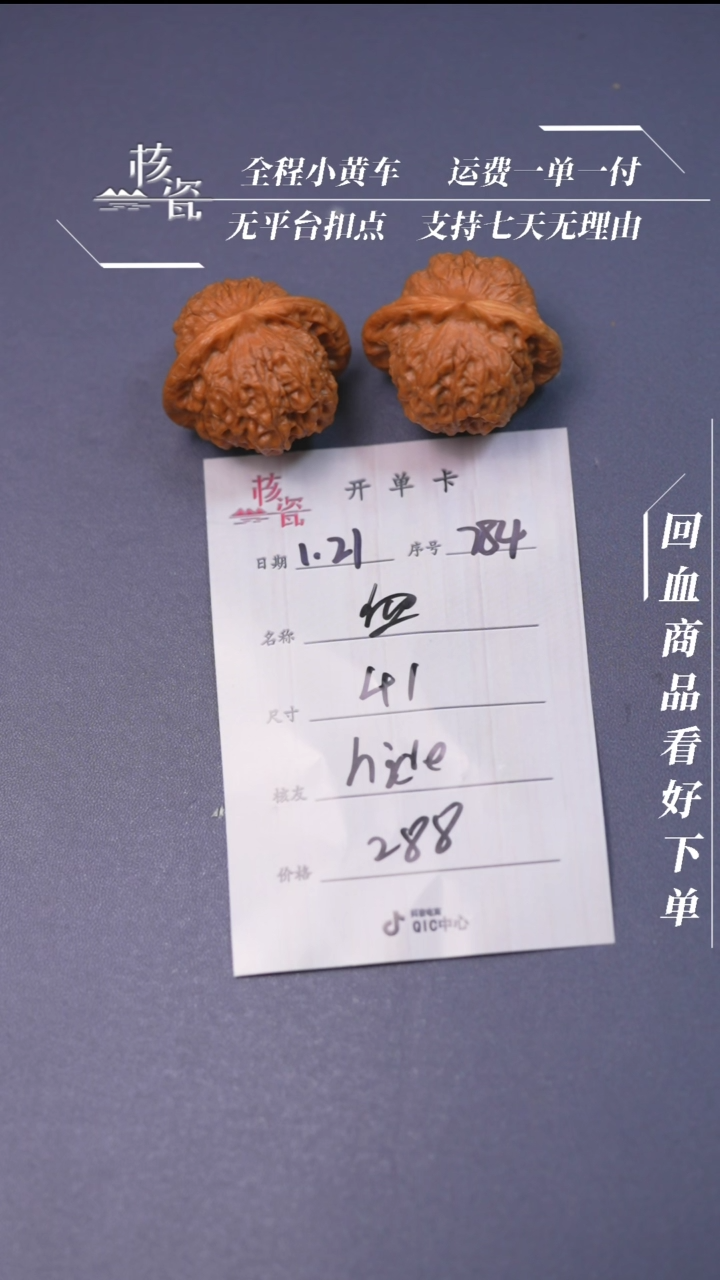 核瓷
全程小黄车 运费一单一付
无平台扣点 支持七天无理由
核瓷 开单卡
日期 1.21 序号 784
名称
尺寸 41
核友 hide
价格 288
抖音电商
QIC中心
回血商品看好下单